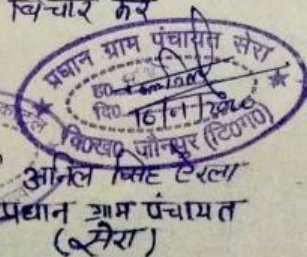 विचार करें
प्रधान ग्राम पंचायत सेरा
ह०
दि० 16/1/2020
वि०ख० जौनपुर (टि०ग०)
अनिल सिंह
प्रधान ग्राम पंचायत
(सेरा)